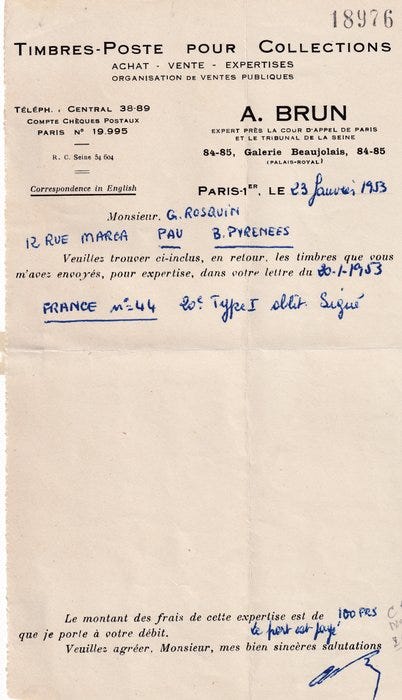 18976
TIMBRES-POSTE POUR COLLECTIONS
ACHAT - VENTE - EXPERTISES
ORGANISATION DE VENTES PUBLIQUES
TÉLÉPH. : CENTRAL 38-89
COMPTE CHÈQUES POSTAUX
PARIS N° 19.995
R. C. Seine 54 604
Correspondence in English
A. BRUN
EXPERT PRÈS LA COUR D'APPEL DE PARIS
ET LE TRIBUNAL DE LA SEINE
84-85, Galerie Beaujolais, 84-85
(PALAIS-ROYAL)
PARIS-1ER, LE 23 Janvier 1953
Monsieur. G. ROSQUIN
12 RUE MARCA PAU B. PYRENEES
Veuillez trouver ci-inclus, en retour, les timbres que vous
m'avez envoyés, pour expertise, dans votre lettre du 20-1-1953
FRANCE n°-44 20c Type I oblit. Signé
Le montant des frais de cette expertise est de 100 FRS
que je porte à votre débit. Le port est payé
Veuillez agréer, Monsieur, mes bien sincères salutations